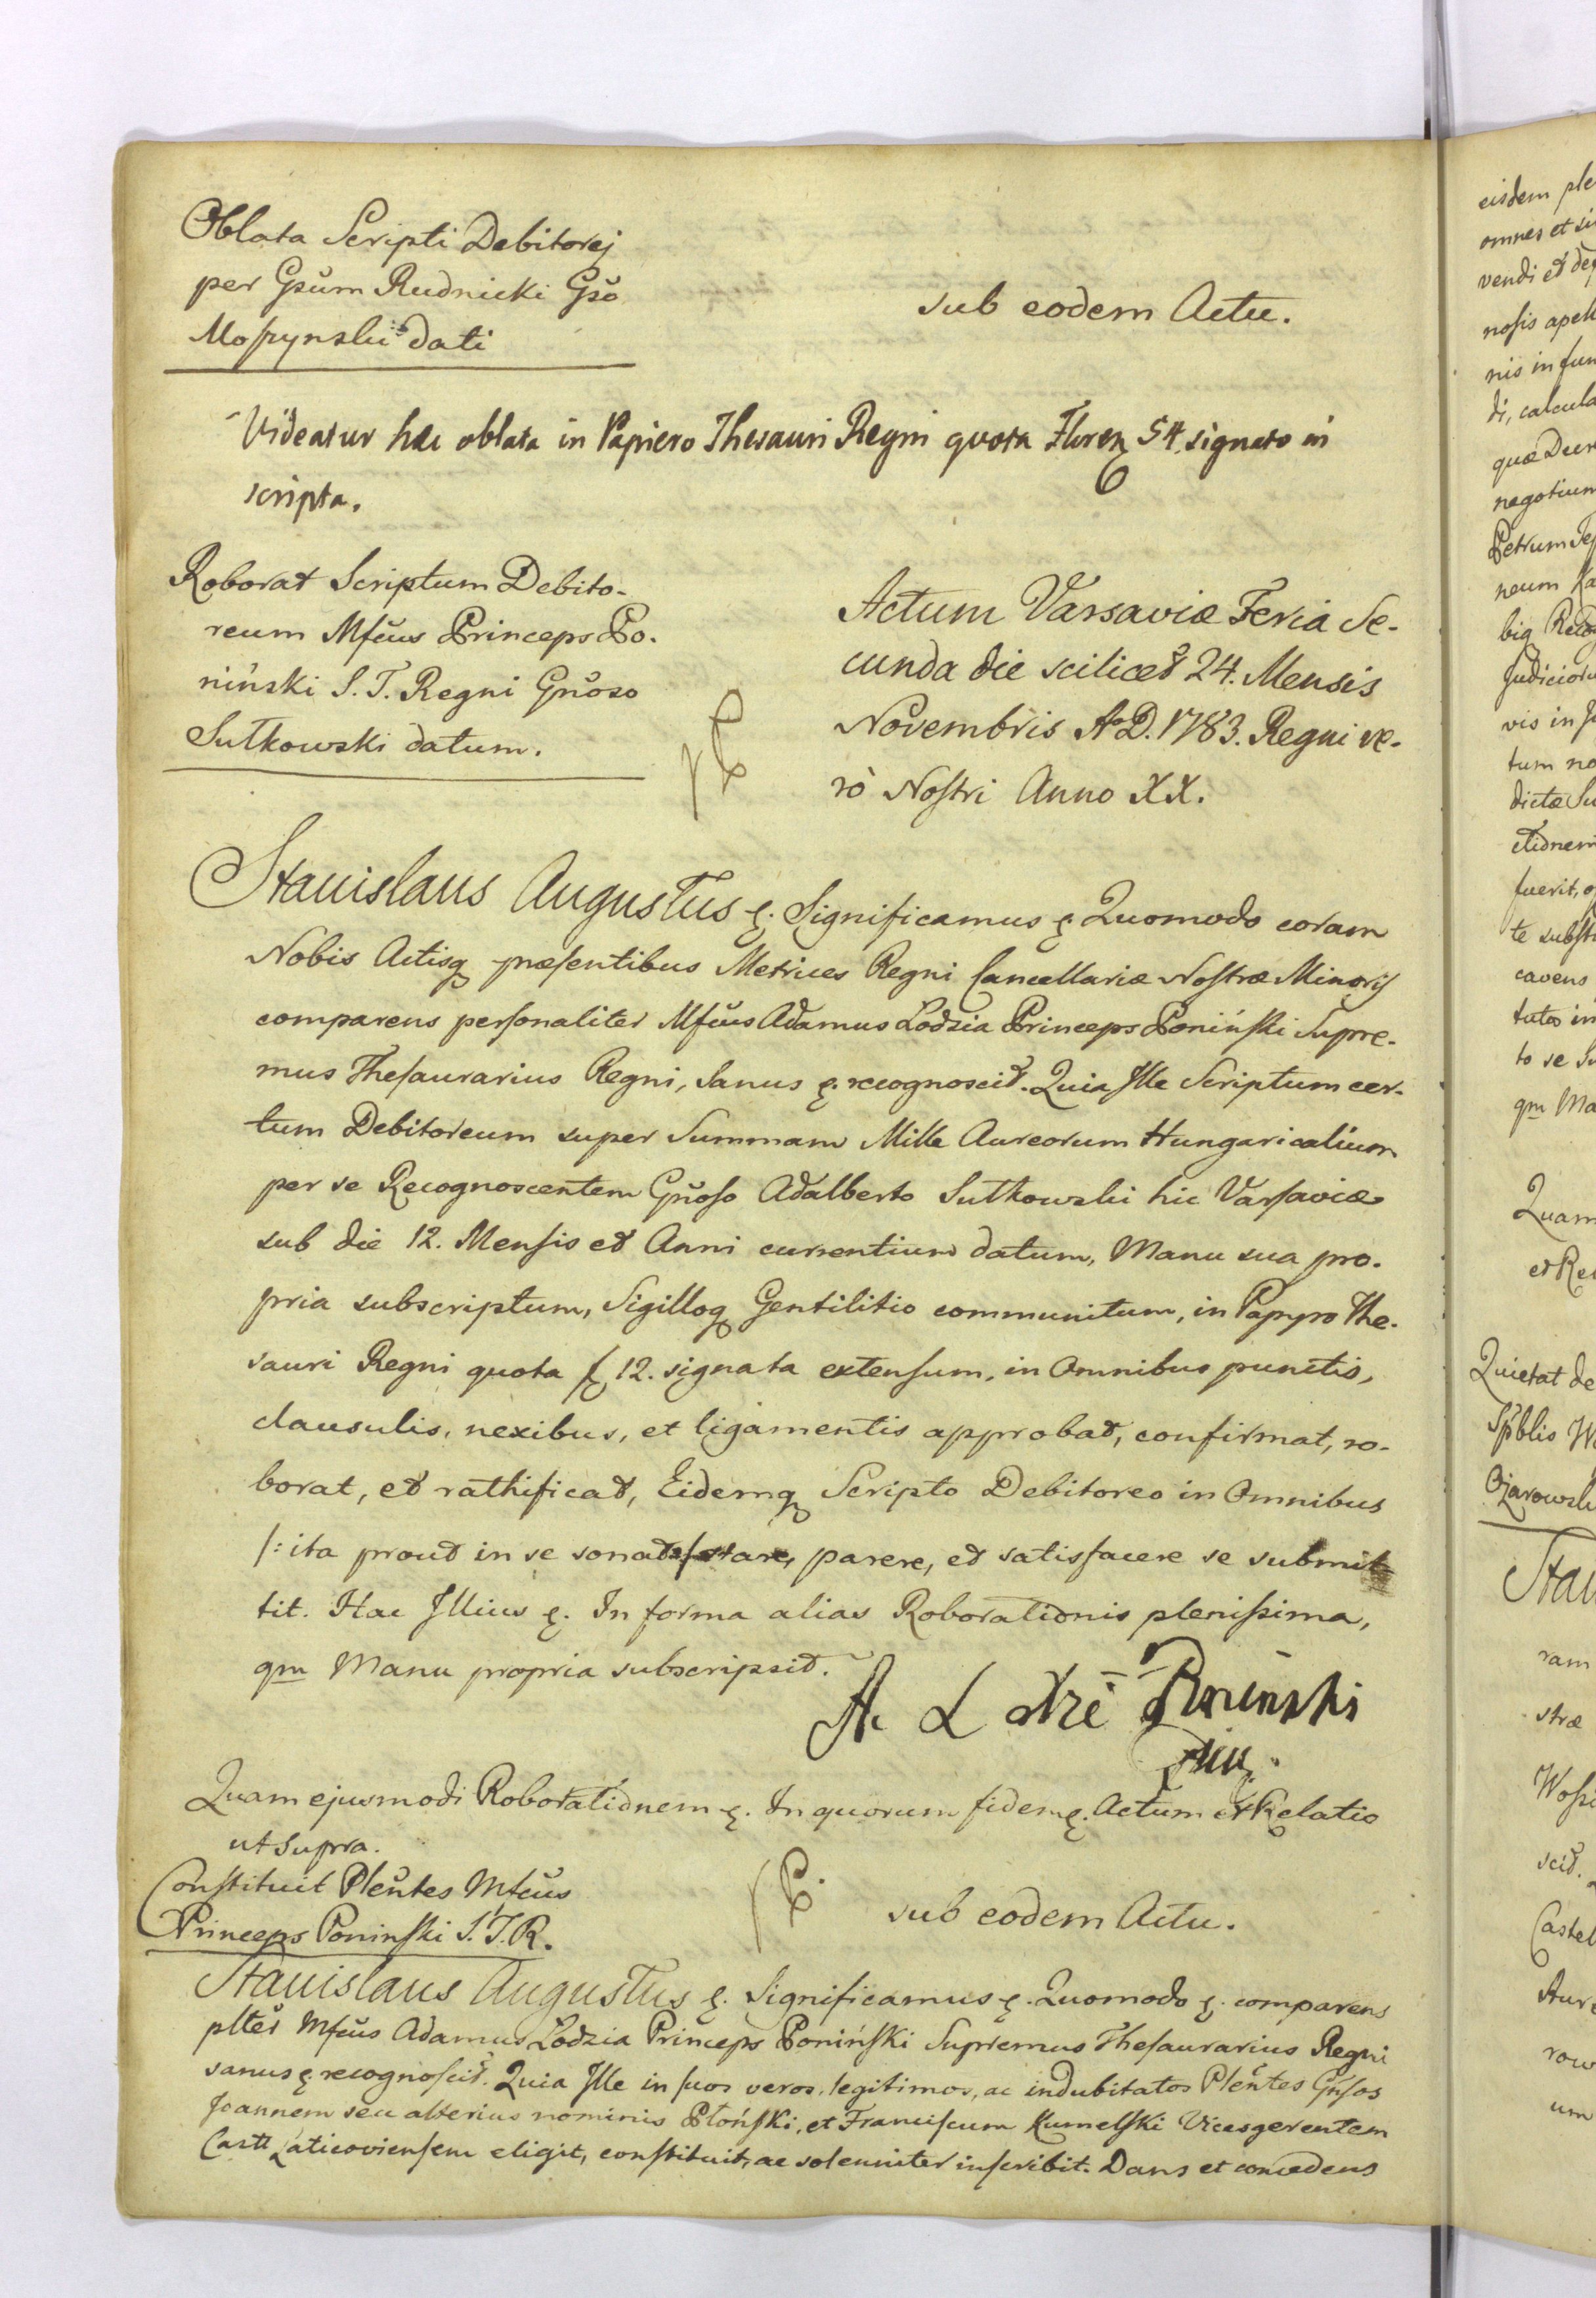 Oblata Scripti Debitorej
per Gsŭm Rudnicki Gsŏ
dati
sub eodem Actu.
Videatur hæc oblata in Papiero Thesauri Regni quota Floren 54. signato in
scripta.
Roborat Scriptum Debito-
reum Mfcŭs Princeps Po-
niński S. T. Regni Gnŏso
Sutkowski datum.
Actum Varsaviæ Feria Se-
cunda die scilicet 24. Mensis
Novembris AoD. 1783. Regni ve-
rò Nostri Anno XX.
Stanislaus Augustus &. Significamus &. Quomodo coram
Nobis Actisq præsentibus Metrices Regni Cancellariæ Nostræ Minoris
comparens personaliter Mfcŭs Adamus Lodzia Princeps Poniński Supre-
mus Thesaurarius Regni, Sanus &. recognoscit. Quia Ille Scriptum cer-
tum Debitoreum super Summam Mille Aureorum Hungaricalium
per se Recognoscentem Gnŏso Adalberto Sutkowski hic Varsaviæ
sub die 12. Mensis et Anni currentium datum, Manu sua pro-
pria subscriptum, Sigilloq Gentilitio communitum, in Papyro The-
sauri Regni quota f 12. signata extensum, in Omnibus punctis,
clausulis, nexibus, et ligamentis approbat, confirmat, ro-
borat, et rathificat, Eidemq Scripto Debitoreo in Omnibus
/: ita prout in se sonat stare, parere, et satisfacere se submit
tit. Hac Illius &. In forma alias Roborationis plenissima,
qm Manu propria subscripsit.
A. L Poninski
Quam ejusmodi Roborationem &. In quorum fidem &. Actum et Relatio
ut Supra.
Constituit Plĕntes Mfcŭs
Princeps Poninski S. T. R.
sub eodem Actu.
Stanislaus Augustus &. Significamus &. Quomodo &. comparens
plter Mfcŭs Adamus Lodzia Princeps Poniński Supremus Thesaurarius Regni
sanus & recognoscit. Quia Ille in suos veros, legitimos, ac indubitatos Plĕntes Gnsos
Joannem seu alterius nominis Płoński, et Franciscum Kumelski Vicesgerentem
Castr Laticoviensem eligit, constituit, ac solenniter inscribit. Dans et concedens
eisdem
omnes et
vendi et
nosis
nis in
di,
quæ
negotium
Petrum
neum
vis in
tum
dictæ
fuerit,
te
cavens
tutos
to se
qm
Quam
et
Quietat de
Spblis
ram
stræ
scit.
um